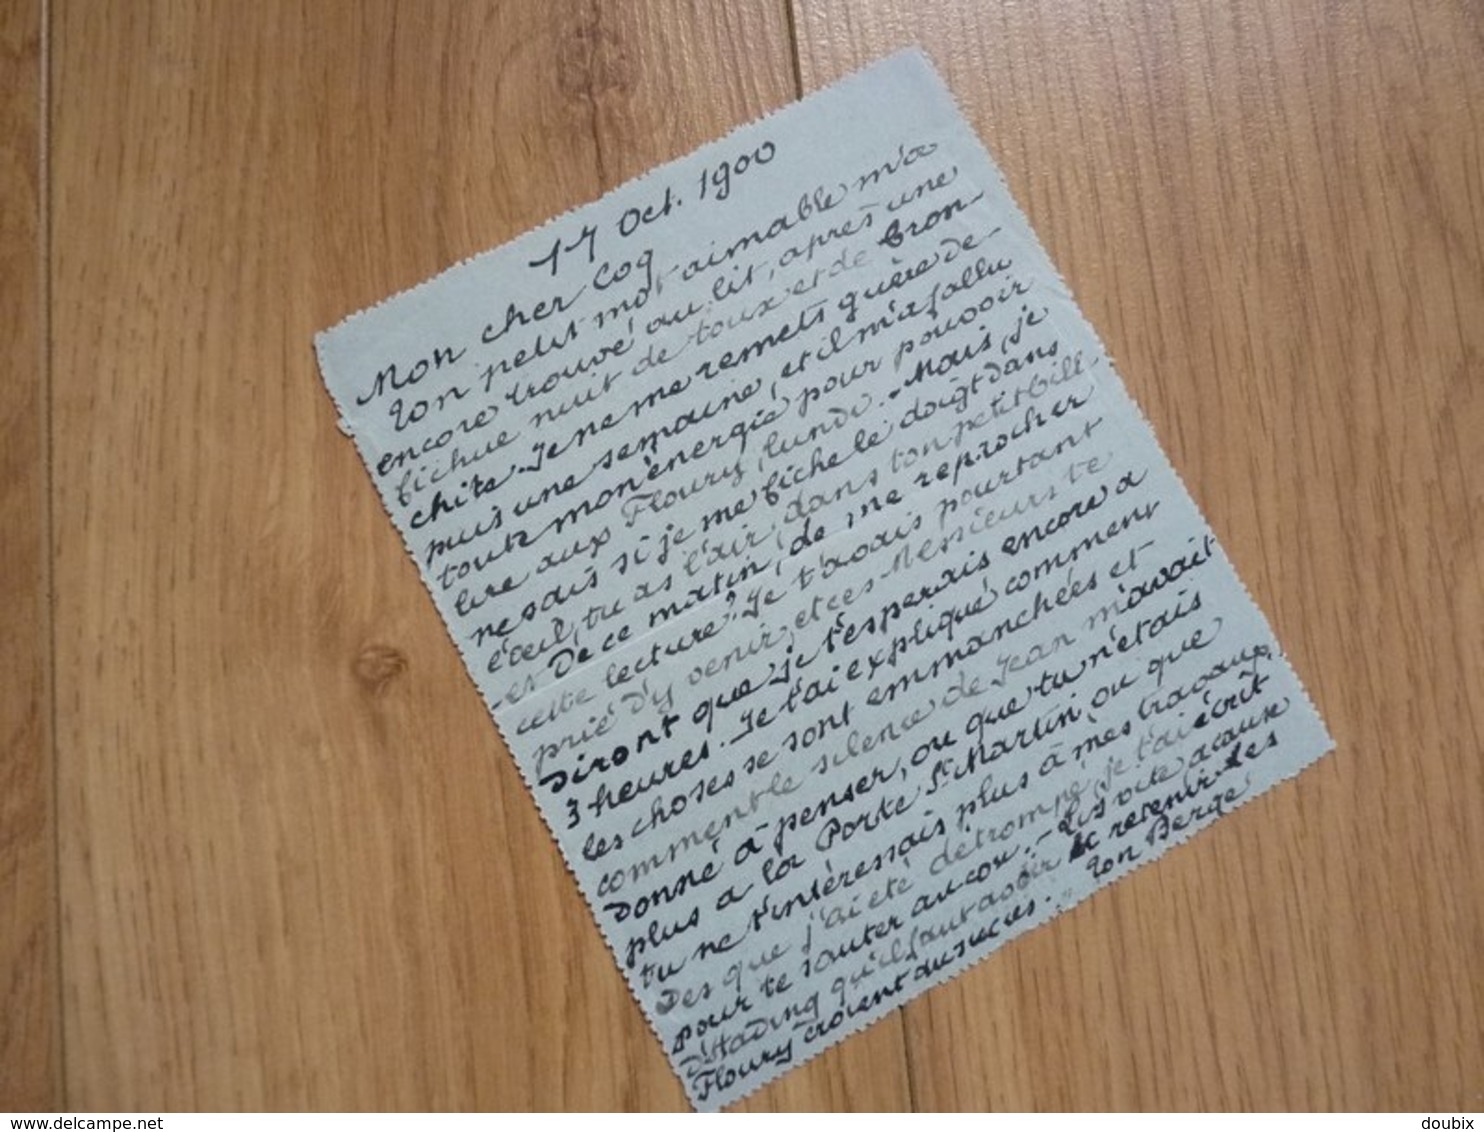 17 Oct. 1900
Mon cher Coq
Ton petit mot aimable m'a
encore trouvé au lit, après une
fichue nuit de toux et de bron-
chite. Je ne me remets guère de-
puis une semaine, et il m'a fallu
toute mon énergie pour pouvoir
lire aux Floury, lundi. - Mais, je
ne sais si je me fiche le doigt dans
l'œil, tu as l'air, dans ton petit bill-
-et de ce matin, de me reprocher
cette lecture? Je t'avais pourtant
prié d'y venir, et ces Messieurs te
diront que je t'esperais encore a
3 heures. Je t'ai expliqué comment
les choses se sont emmanchées et
comment le silence de Jean m'avait
donné à penser, ou que tu n'étais
plus a la Porte St Martin, ou que
tu ne t'intéressais plus à mes travaux.
Des que j'ai été détrompé, je t'ai écrit
pour te sauter au cou. - Lis vite a cause
d'Hading qu'il faut avoir le revenir. Les
Floury croient au succès. " Ton Bergé
delcampe.net
doubix